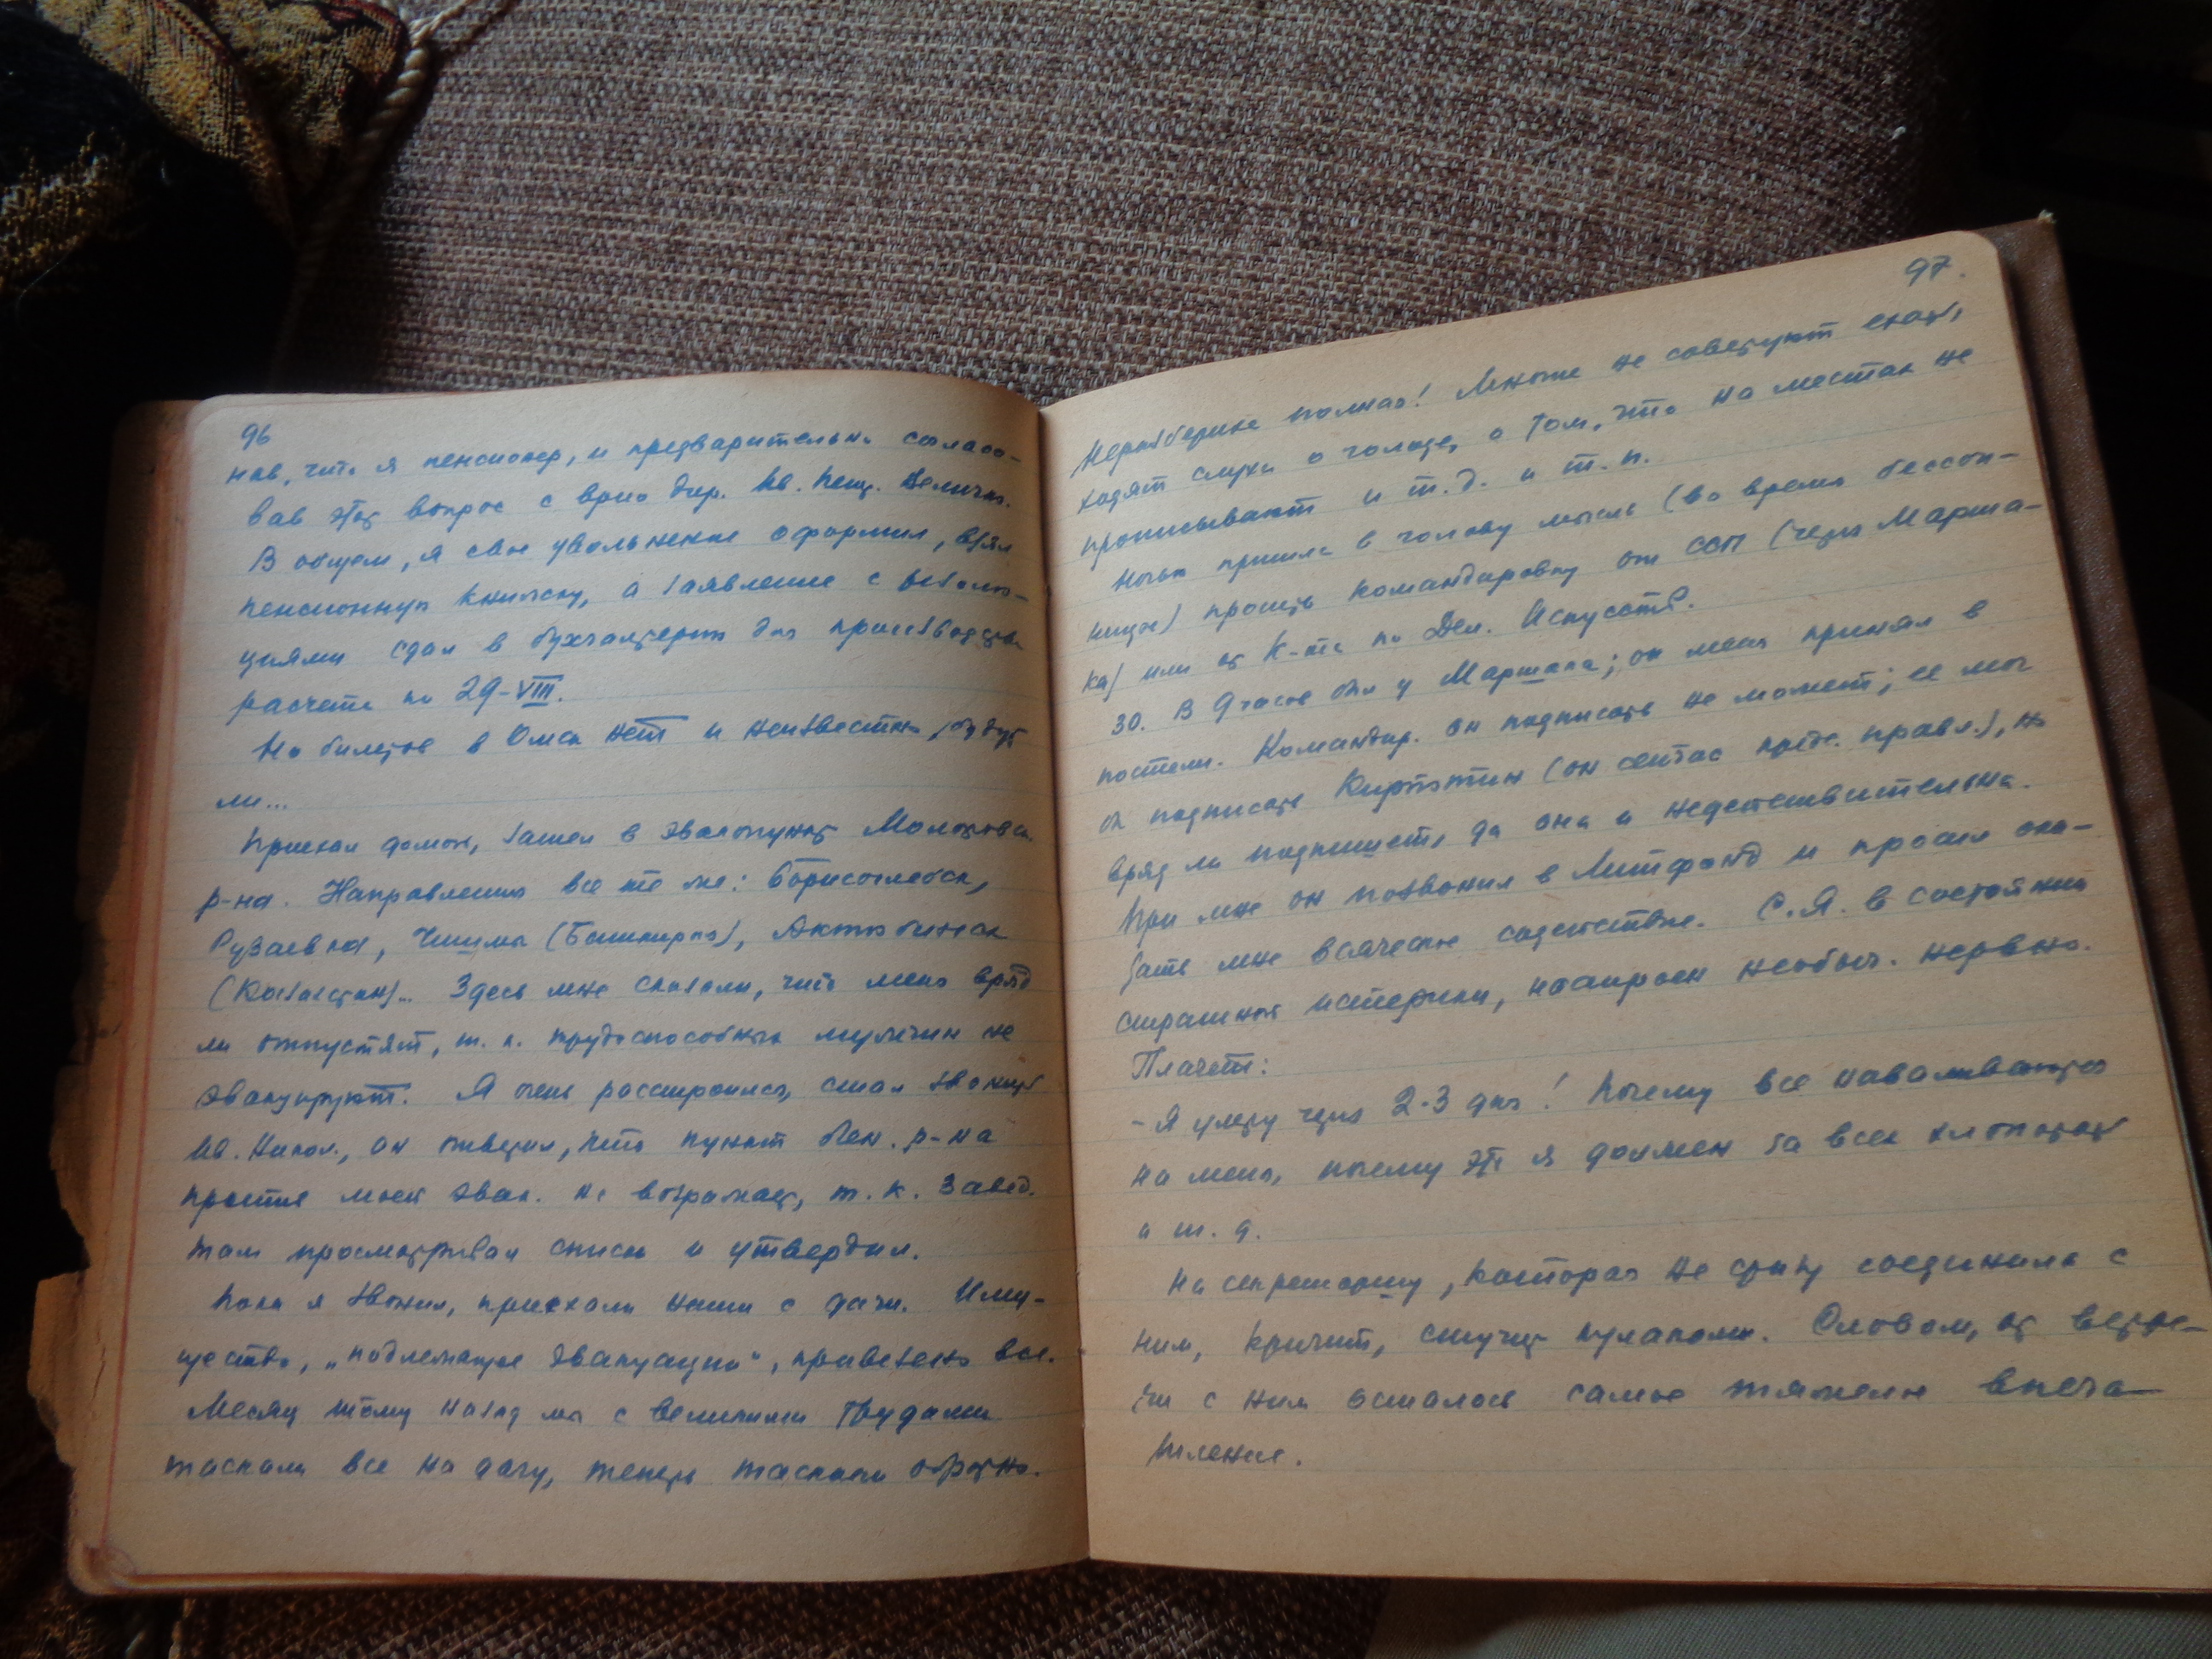 96
нав, что я пенсионер, и предварительно согласо-
вав этот вопрос с врио дир. Ив. Пец. Величк.
В общем, я свое увольнение оформил, взял
пенсионную книжку, а заявление с резолю-
циями сдал в бухгалтерию для производства
расчета по 29-VIII.
Но билетов в Омск нет и неизвестно, будут
ли...
Приехал домой, зашел в эвакопункт Молотовск.
р-на. Направления все те же: Борисоглебск,
Рузаевка, Чишмы (Башкирия), Актюбинск
(Казахстан)... Здесь мне сказали, что меня вряд
ли отпустят, т. к. трудоспособных мужчин не
эвакуируют. Я очень расстроился, стал звонить
Ив. Никол., он ответил, что пункт Лен. р-на
против моей эвак. не возражает, т. к. Завед.
там просматривал список и утвердил.
Пока я звонил, приехали наши с дачи. Иму-
щество, „подлежащее эвакуации", привезено все.
Месяц тому назад мы с великими трудами
таскали все на дачу, теперь таскали обратно.
97.
Неразбериха полная! Многие не советуют ехать,
ходят слухи о голоде, о том, что на местах не
прописывают и т. д. и т. п.
Ночью пришла в голову мысль (во время бессон-
ницы) просить командировку от ССП (через Марша-
ка) или от К-та по Дел. Искусств.
30. В 9 часов был у Маршака; он меня принял в
постели. Командир. он подписать не может; ее мог
бы подписать Кирпотин (он сейчас предс. правл.), но
вряд ли подпишет, да она и недействительна.
При мне он позвонил в Литфонд и просил ока-
зать мне всяческое содействие. С. Я. в состоянии
страшной истерики, настроен необыч. нервно.
Плачет:
- Я умру через 2-3 дня! Почему все наваливаются
на меня, почему это я должен за всех хлопотать
и т. д.
На секретаршу, которая не сразу соединила с
ним, кричит, стучит кулаками. Словом, от встре-
чи с ним осталось самое тяжелое впеча-
тление.